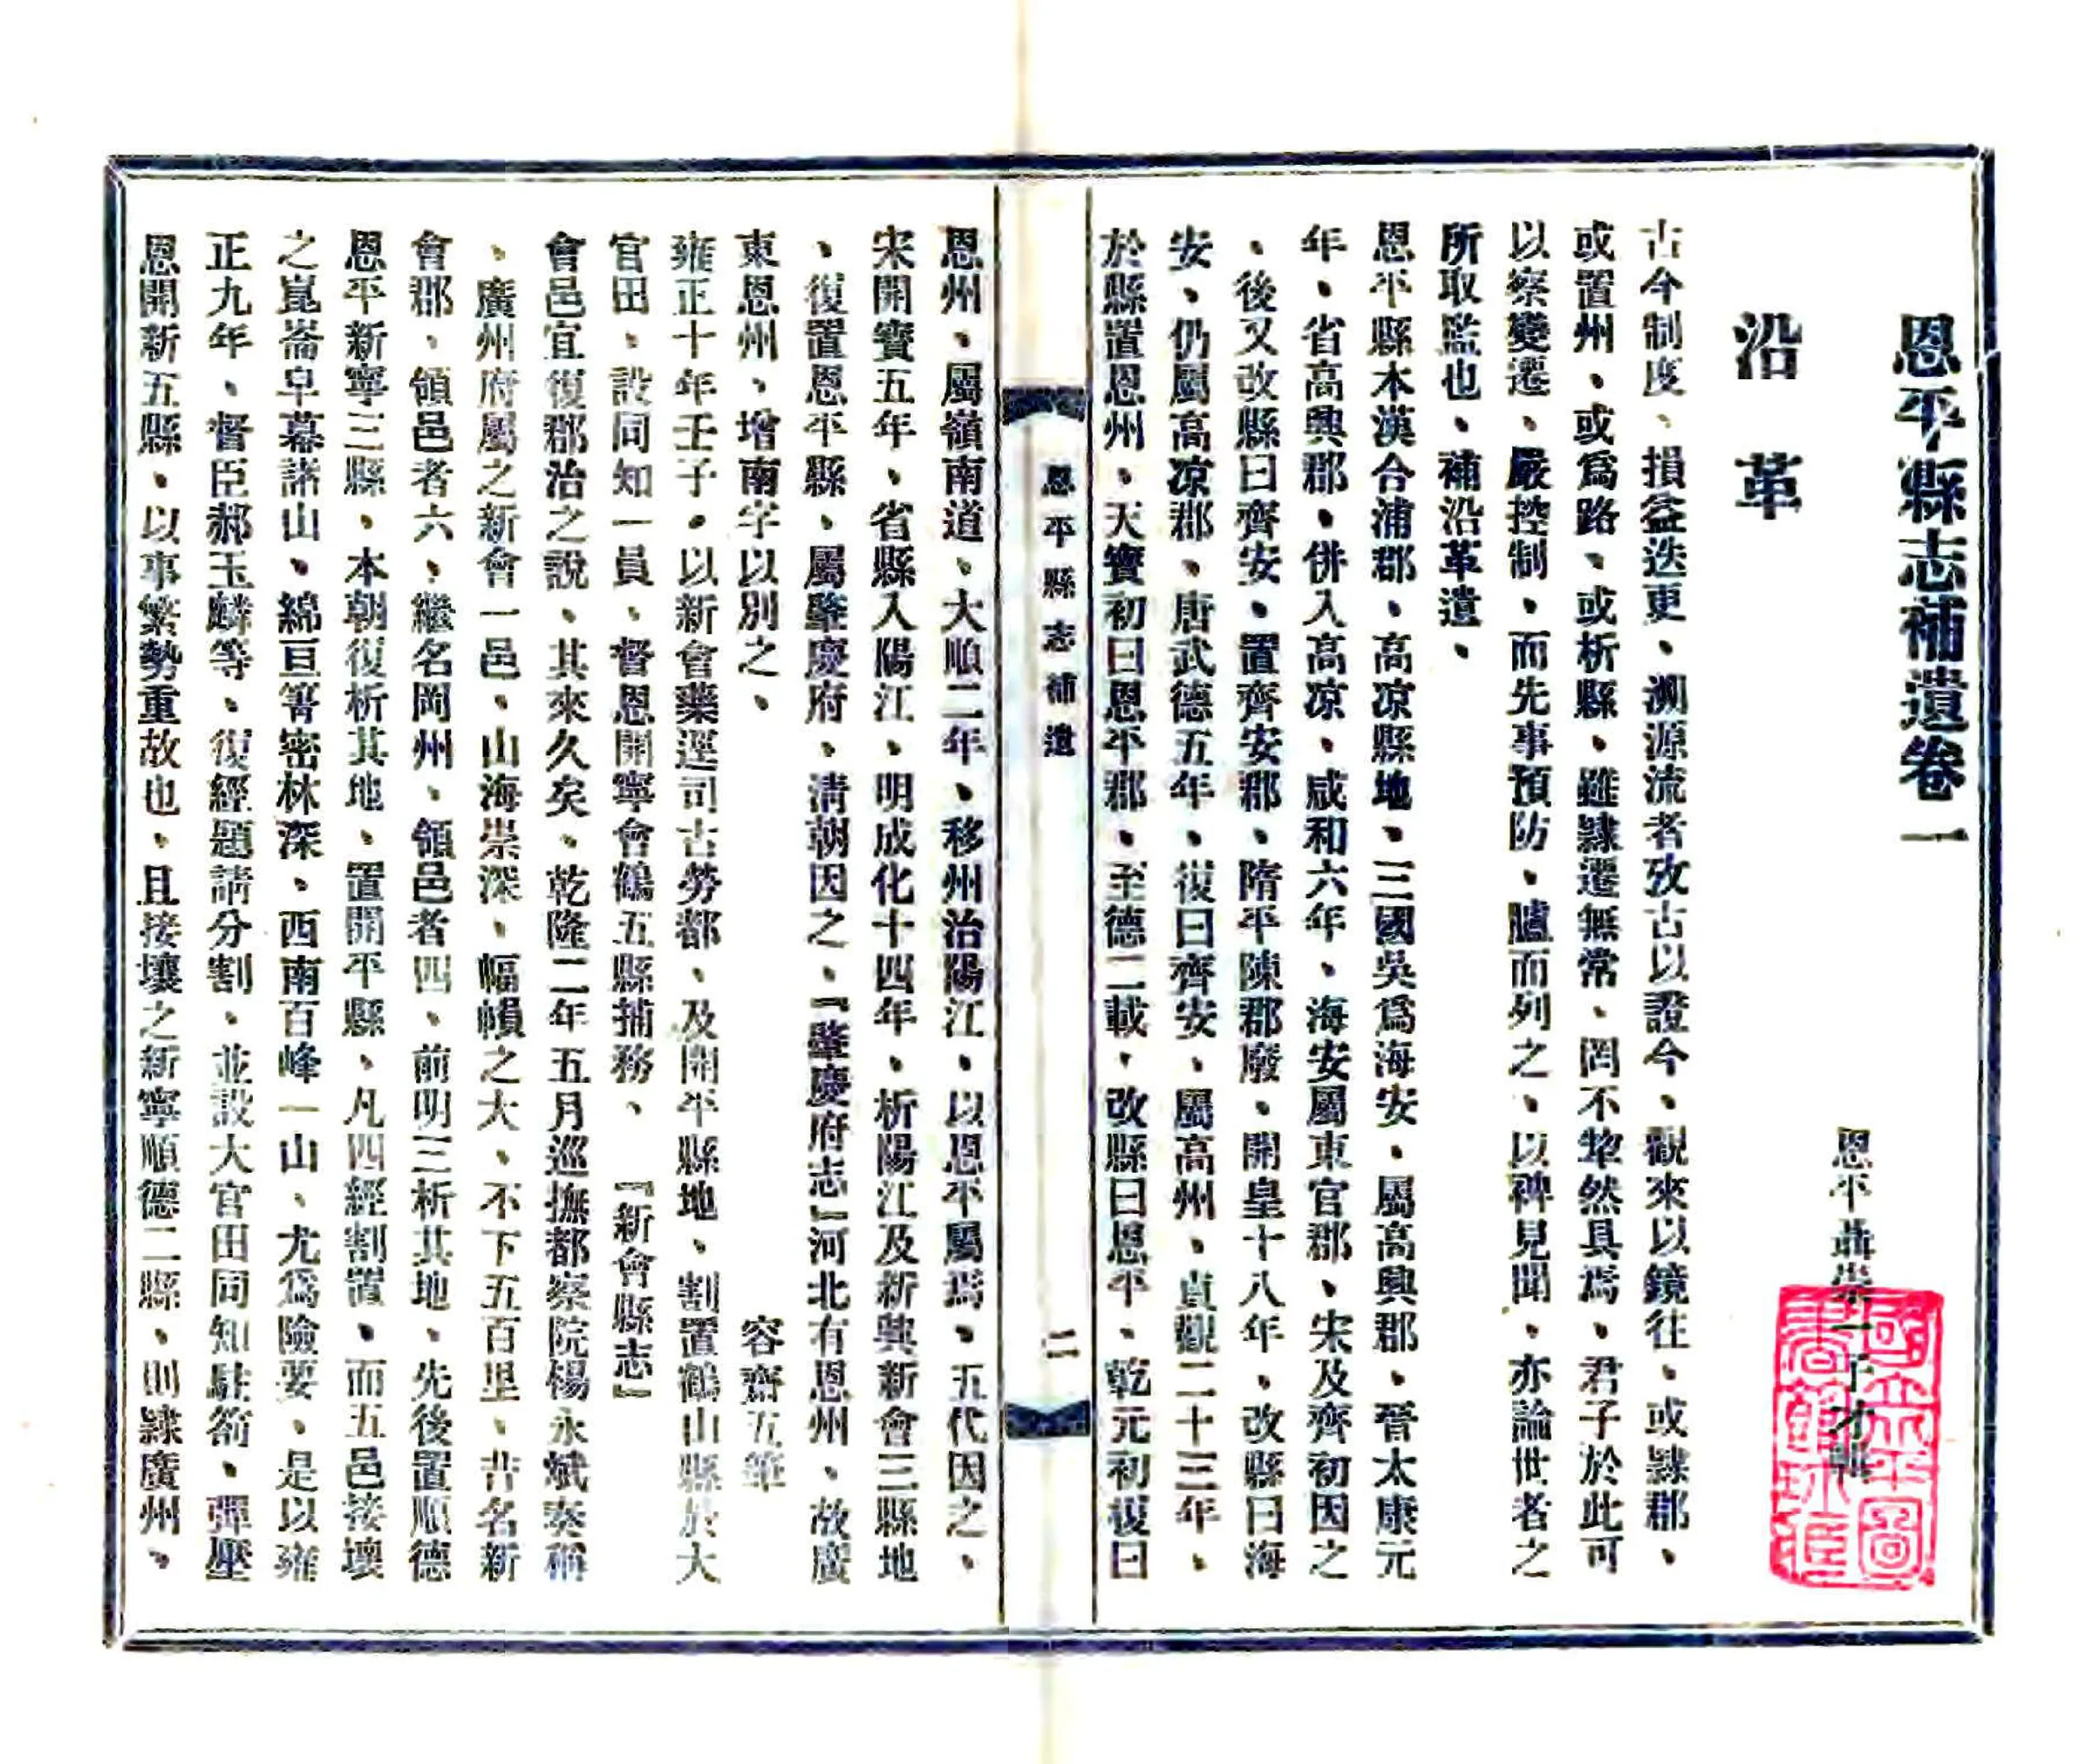 恩平縣志補遺卷一
恩平聶崇一子才輯
沿革
古今制度、損益迭更、溯源流者攷古以證今、觀來以鏡往、或隸郡、
或置州、或爲路、或析縣、雖隸遷無常、罔不犂然具焉、君子於此可
以察變遷、嚴控制、而先事預防、臚而列之、以裨見聞、亦論世者之
所取監也、補沿革遺、
恩平縣本漢合浦郡、高凉縣地、三國吳爲海安、屬高興郡、晉太康元
年、省高興郡、併入高凉、咸和六年、海安屬東官郡、宋及齊初因之
、後又改縣曰齊安、置齊安郡、隋平陳郡廢、開皇十八年、改縣曰海
安、仍屬高凉郡、唐武德五年、復曰齊安、屬高州、貞觀二十三年、
於縣置恩州、天寶初曰恩平郡、至德二載、改縣曰恩平、乾元初復曰
恩平縣志補遺
二
恩州、屬嶺南道、大順二年、移州治陽江、以恩平屬焉、五代因之、
宋開寶五年、省縣入陽江、明成化十四年、析陽江及新興新會三縣地
、復置恩平縣、屬肇慶府、清朝因之、『肇慶府志』河北有恩州、故廣
東恩州、增南字以別之、
容齋五筆
雍正十年壬子、以新會藥逕司古勞都、及開平縣地、割置鶴山縣於大
官田、設同知一員、督恩開寧會鶴五縣捕務、『新會縣志』
會邑宜復郡治之說、其來久矣、乾隆二年五月巡撫都察院楊永斌奏稱
、廣州府屬之新會一邑、山海崇深、幅幀之大、不下五百里、昔名新
會郡、領邑者六、繼名岡州、領邑者四、前明三析其地、先後置順德
恩平新寧三縣、本朝復析其地、置開平縣、凡四經割置、而五邑接壤
之崑崙皁幕諸山、綿亘箐密林深、西南百峰一山、尤爲險要、是以雍
正九年、督臣郝玉麟等、復經題請分割、並設大官田同知駐箚、彈壓
恩開新五縣、以事繁勢重故也、且接壤之新寧順德二縣、則隸廣州、
國立北平圖書館珍藏